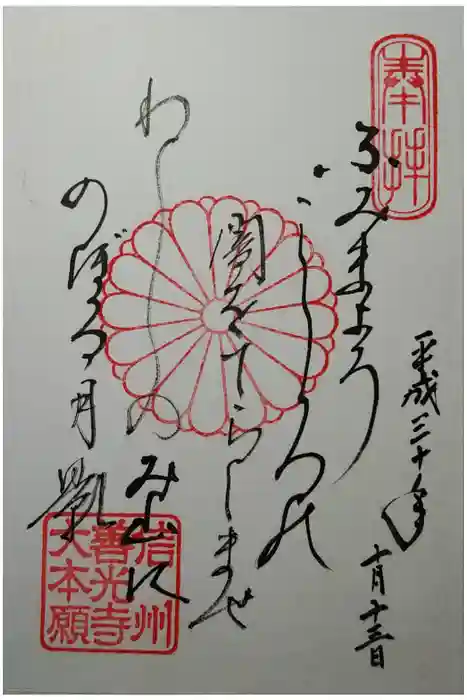 奉拝
ふみまよう
こゝろの
闇をてらしませ
わしのみ山に
のぼる月影
平成三十年
十月十三日
信州
善光寺
大本願